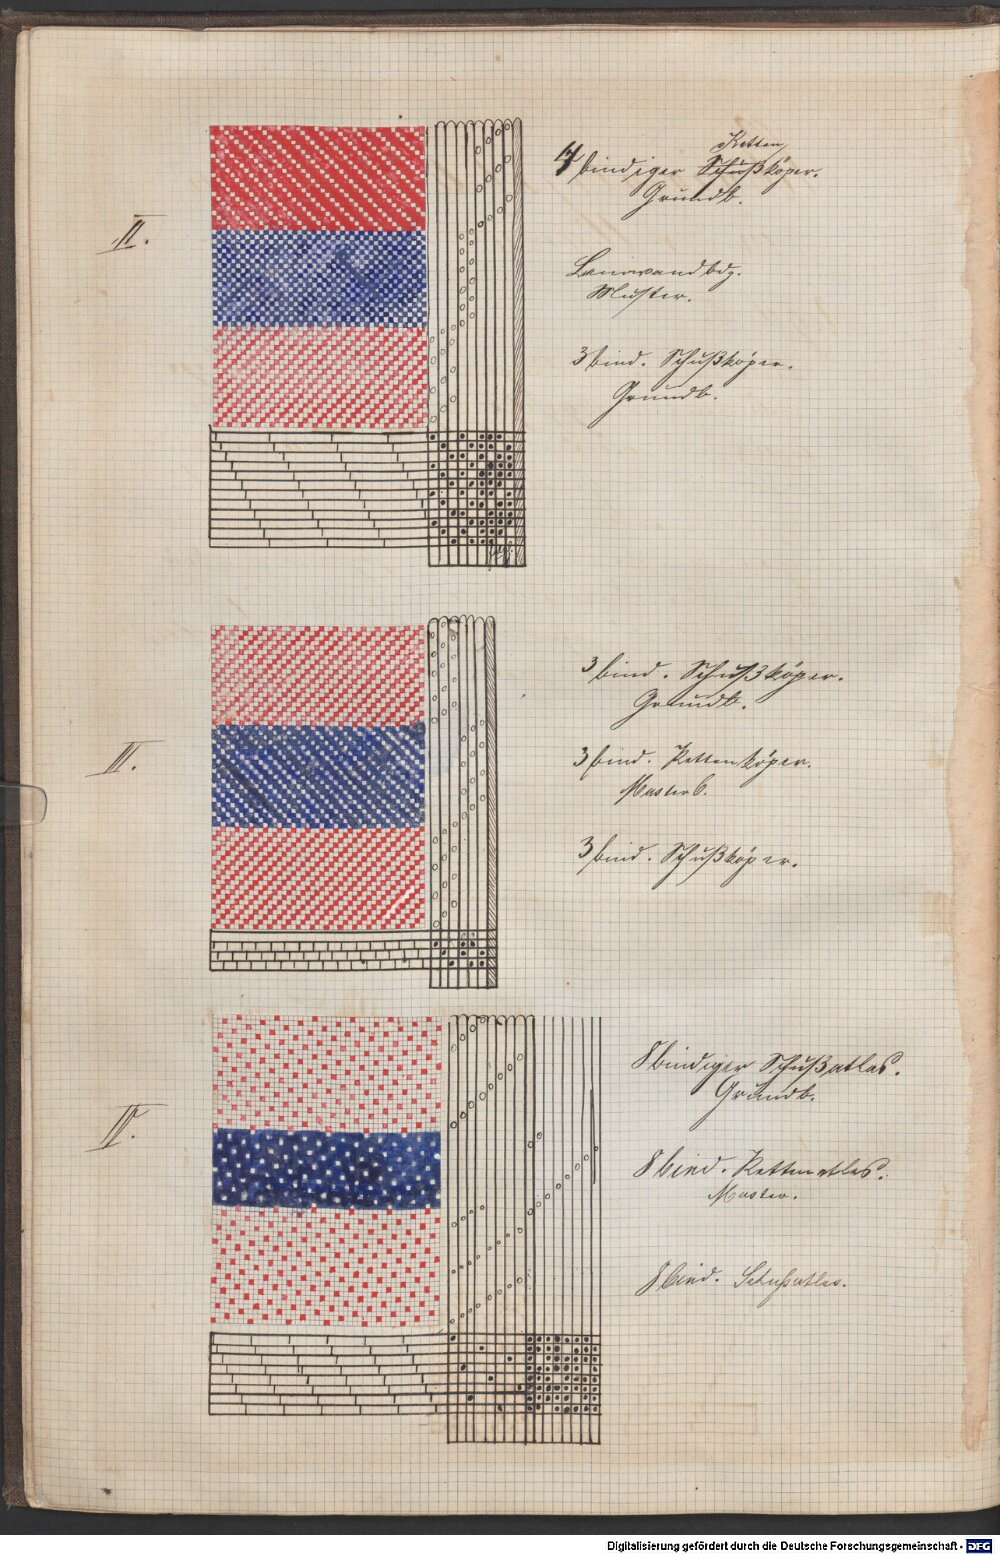 II.
Ketten
4 bindiger Schußköper.
Grundb.
Leinwandbdg.
Muster.
3 bind. Schußköper.
Grundb.
III.
3 bind. Schußköper.
Grundb.
3 bind. Kettenköper.
Musterb.
3 bind. Schußköper.
IV.
8 bindiger Schußatlas.
Grundb.
8 bind. Kettenatlas.
Muster.
8 bind. Schußatlas.
Digitalisierung gefördert durch die Deutsche Forschungsgemeinschaft - DFG